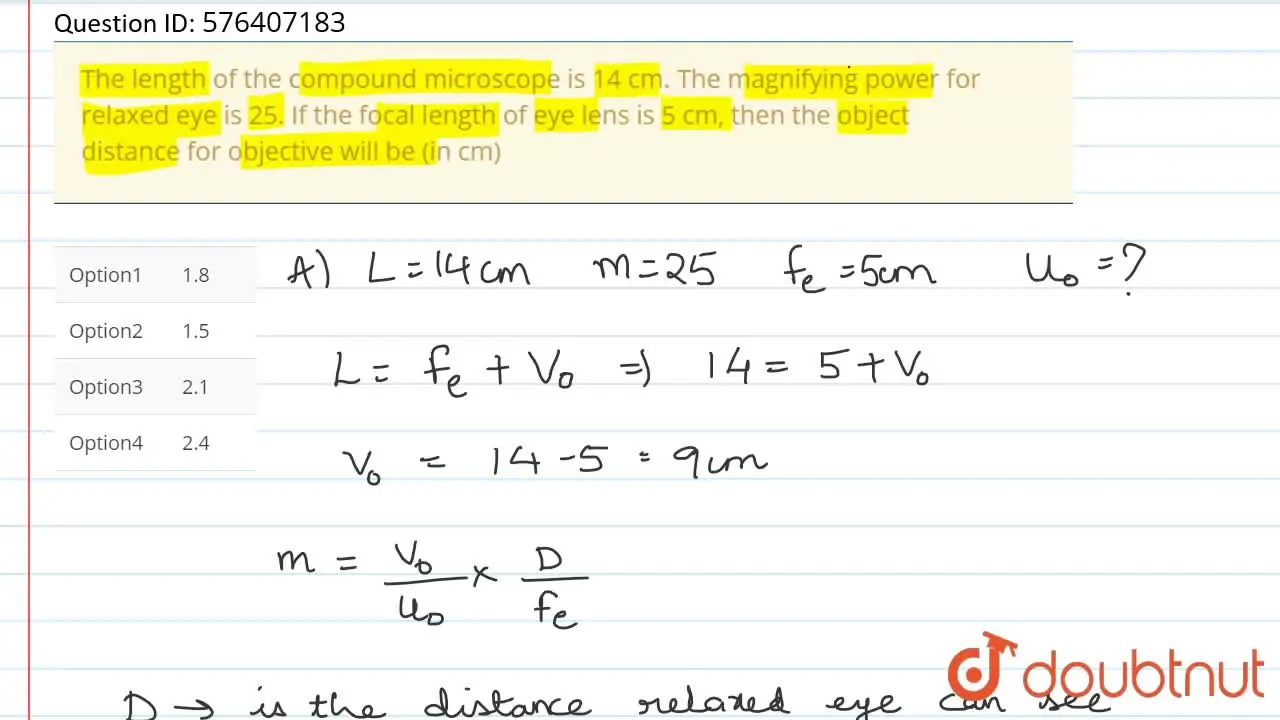 Question ID: 576407183
The length of the compound microscope is 14 cm. The magnifying power for
relaxed eye is 25. If the focal length of eye lens is 5 cm, then the object
distance for objective will be (in cm)
Option1 1.8
Option2 1.5
Option3 2.1
Option4 2.4
A) L = 14 cm m = 25 fe = 5cm uo = ?
L = fe + Vo ⇒ 14 = 5 + Vo
Vo = 14 - 5 = 9 cm
m = Vo/uo × D/fe
D → is the distance relaxed eye can see
doubtnut